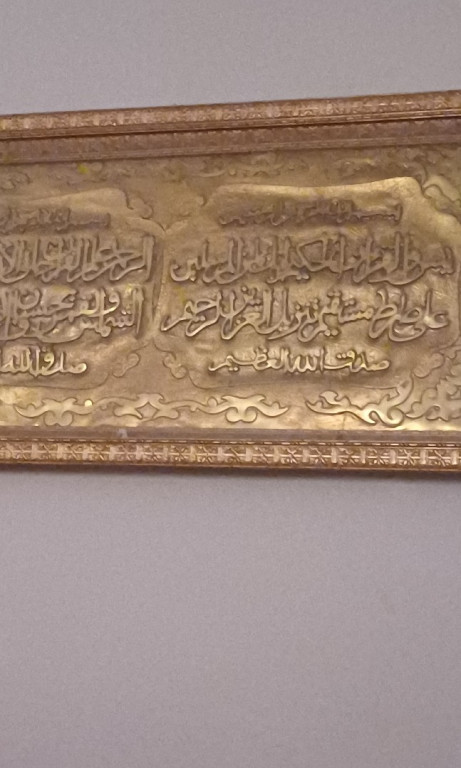 بسم الله الرحمن الرحيم
يس والقرآن الحكيم إنك لمن المرسلين
على صراط مستقيم تنزيل العزيز الرحيم
صدق الله العظيم
الرحمن علم القرآن خلق الا
الشمس والقمر بحسبان وا
صدق الله